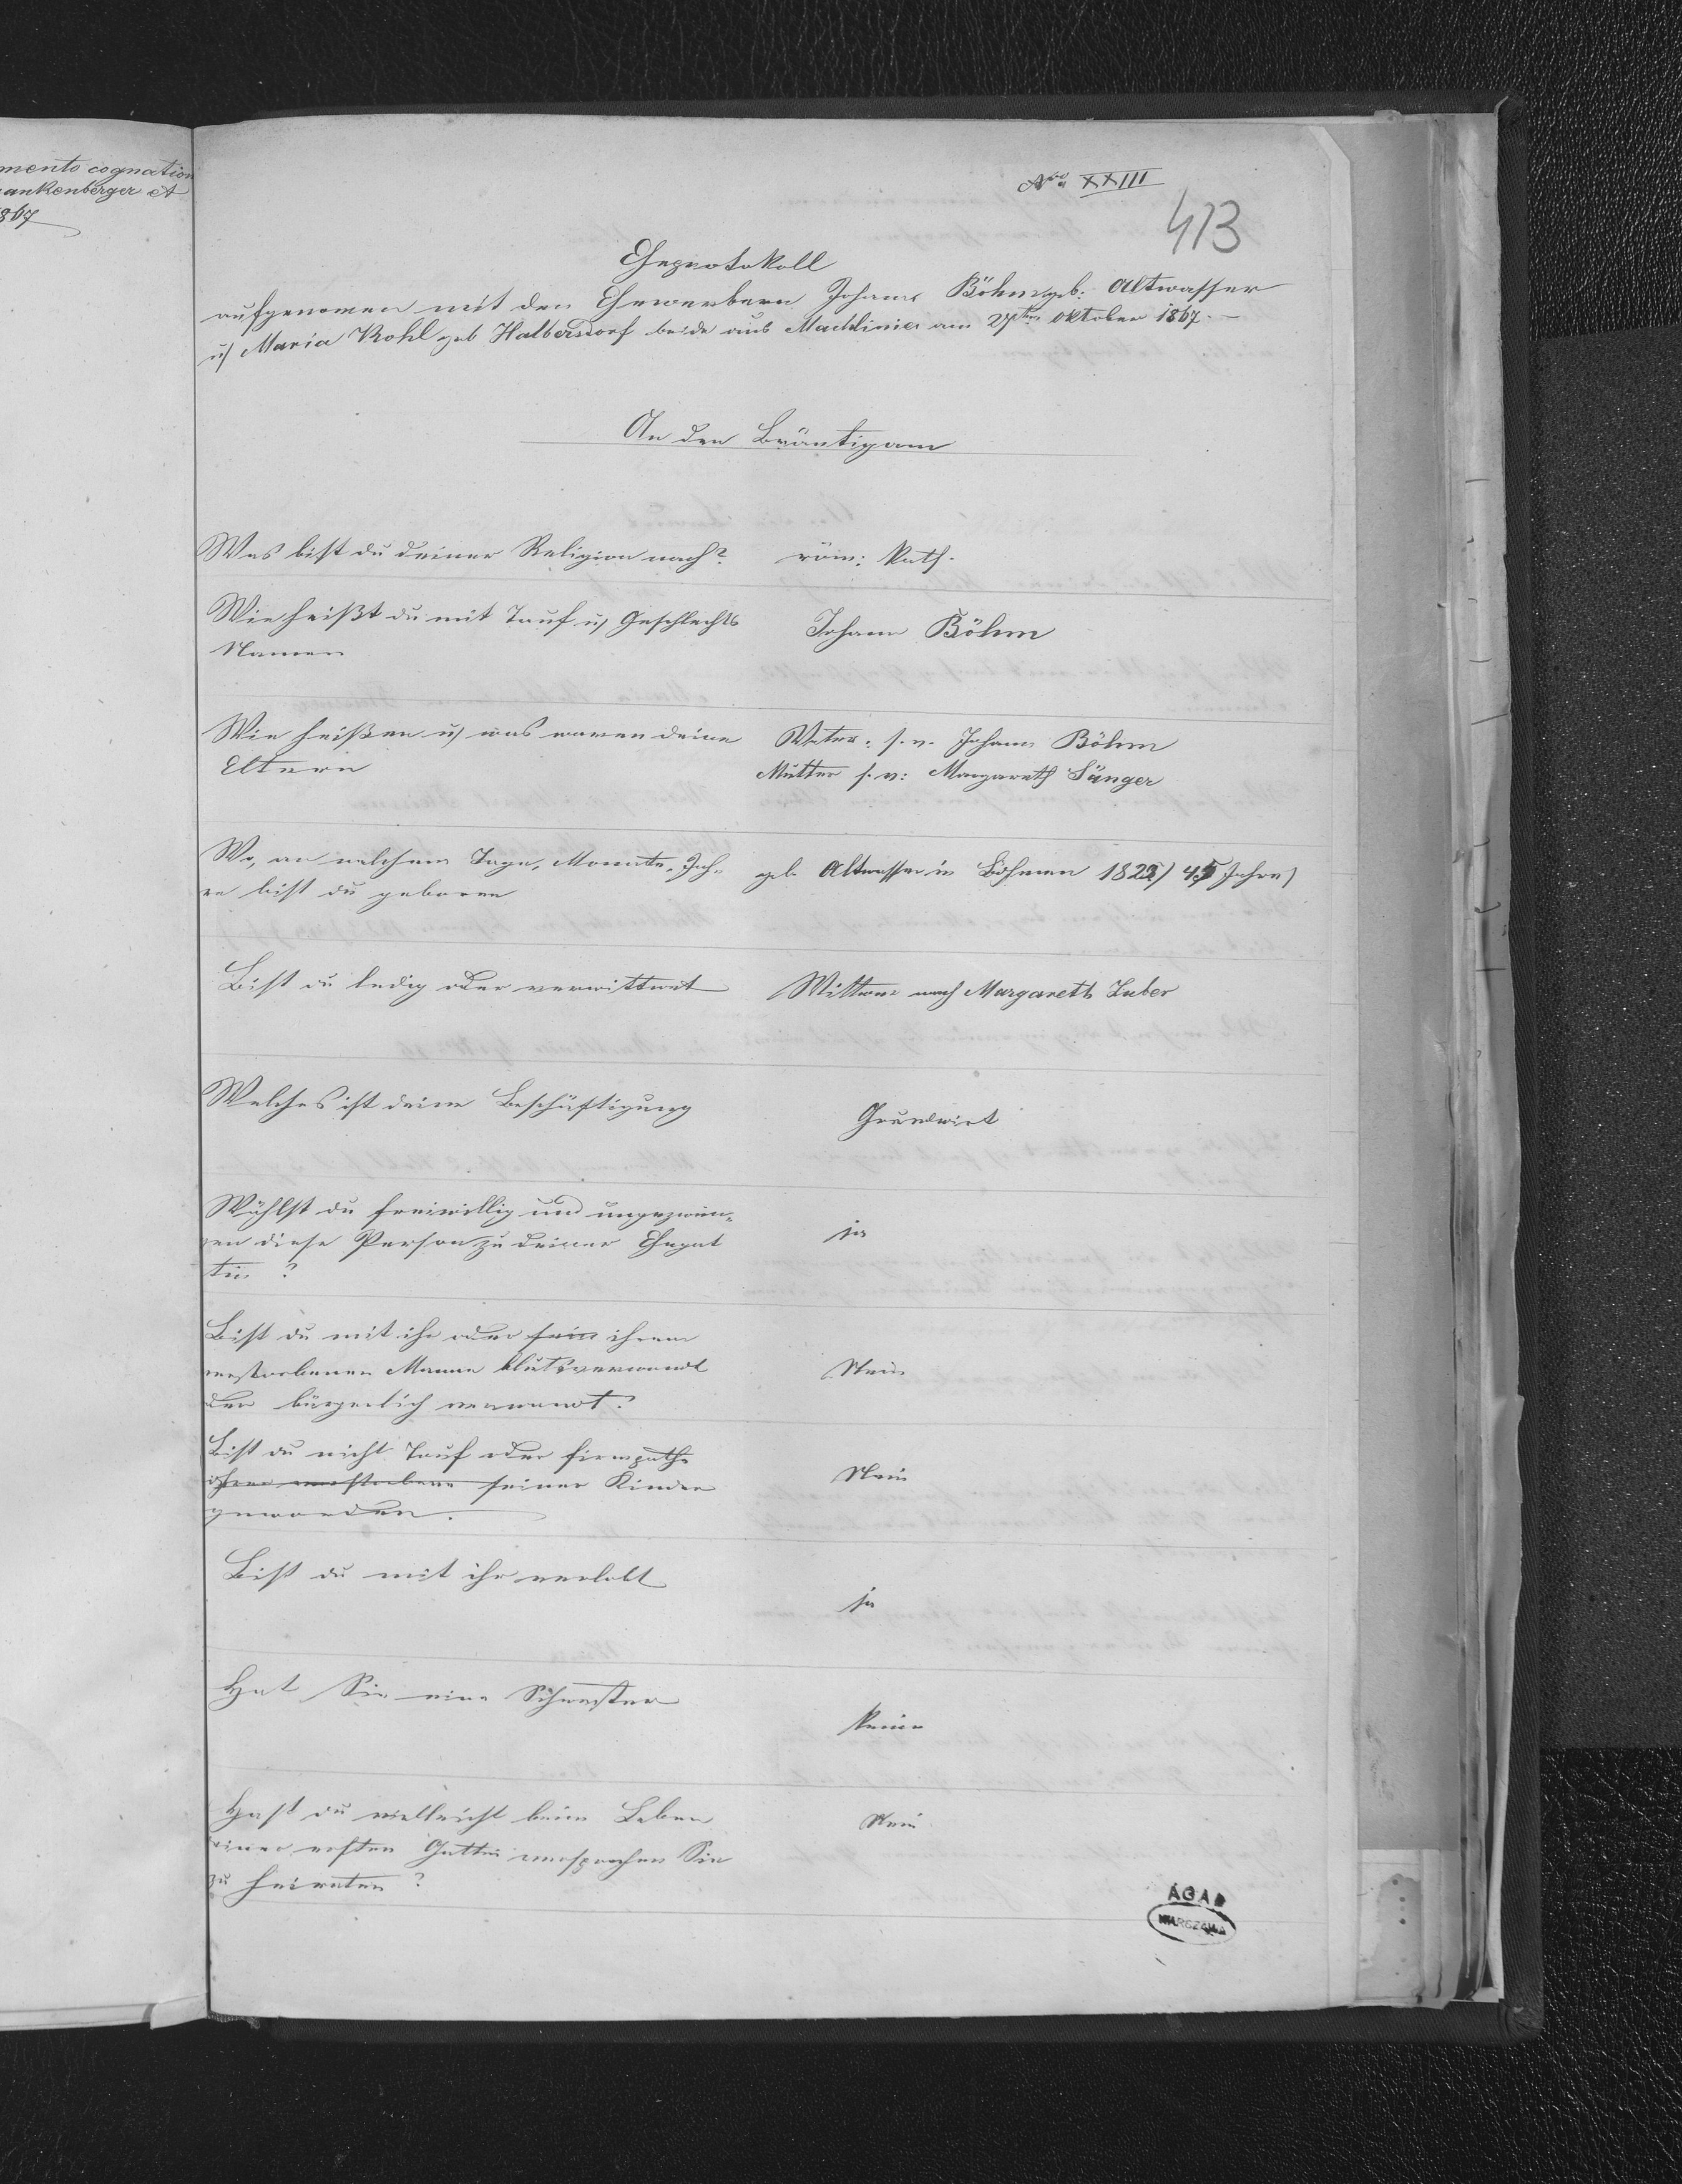 mento cognation
ankenberger et
867
Nro XXIII
413
Eheprotokoll
aufgenomen mit den Ehewerbern Johann Böhm geb: Altwasser
u) Maria Kohl geb Halbersdorf beide aus Machlinies am 27ten Oktober 1867.–
An den Bräutigam
Was bist du deiner Religion nach? röm: kath.
Wie heißt du mit Tauf u) Geschlechts
Namen
Johann Böhm
Wie heißen u) was waren deine
Eltern
Vater: s. v. Johann Böhm
Mutter s. v: Margareth Sänger
Wo, an welchem Tage, Monate, Jah-
re bist du geboren
geb. Altwasser in Böhmen 1822) 45 Jahre)
Bist du ledig oder verwittwet
Wittwer nach Margareth Zuber
Welches ist deine Beschäftigung
Grundwirt
Wählst du freiwillig und ungezwun-
gen diese Person zu deiner Ehegat
tin ?
ja
Bist du mit ihr oder sein ihrem
verstorbenen Manne blutsverwandt
oder bürgerlich verwandt?
Nein
Bist du nicht Tauf oder Firmpathe
ihrer verstorbene seiner Kinder
geworden.
Nein
Bist du mit ihr verlobt
ja
Hat Sie eine Schwester
keine
Hast du vielleicht beim Leben
deiner ersten Gattin versprochen Sie
zu heiraten ?
Nein
AGAD
WARSZAWA